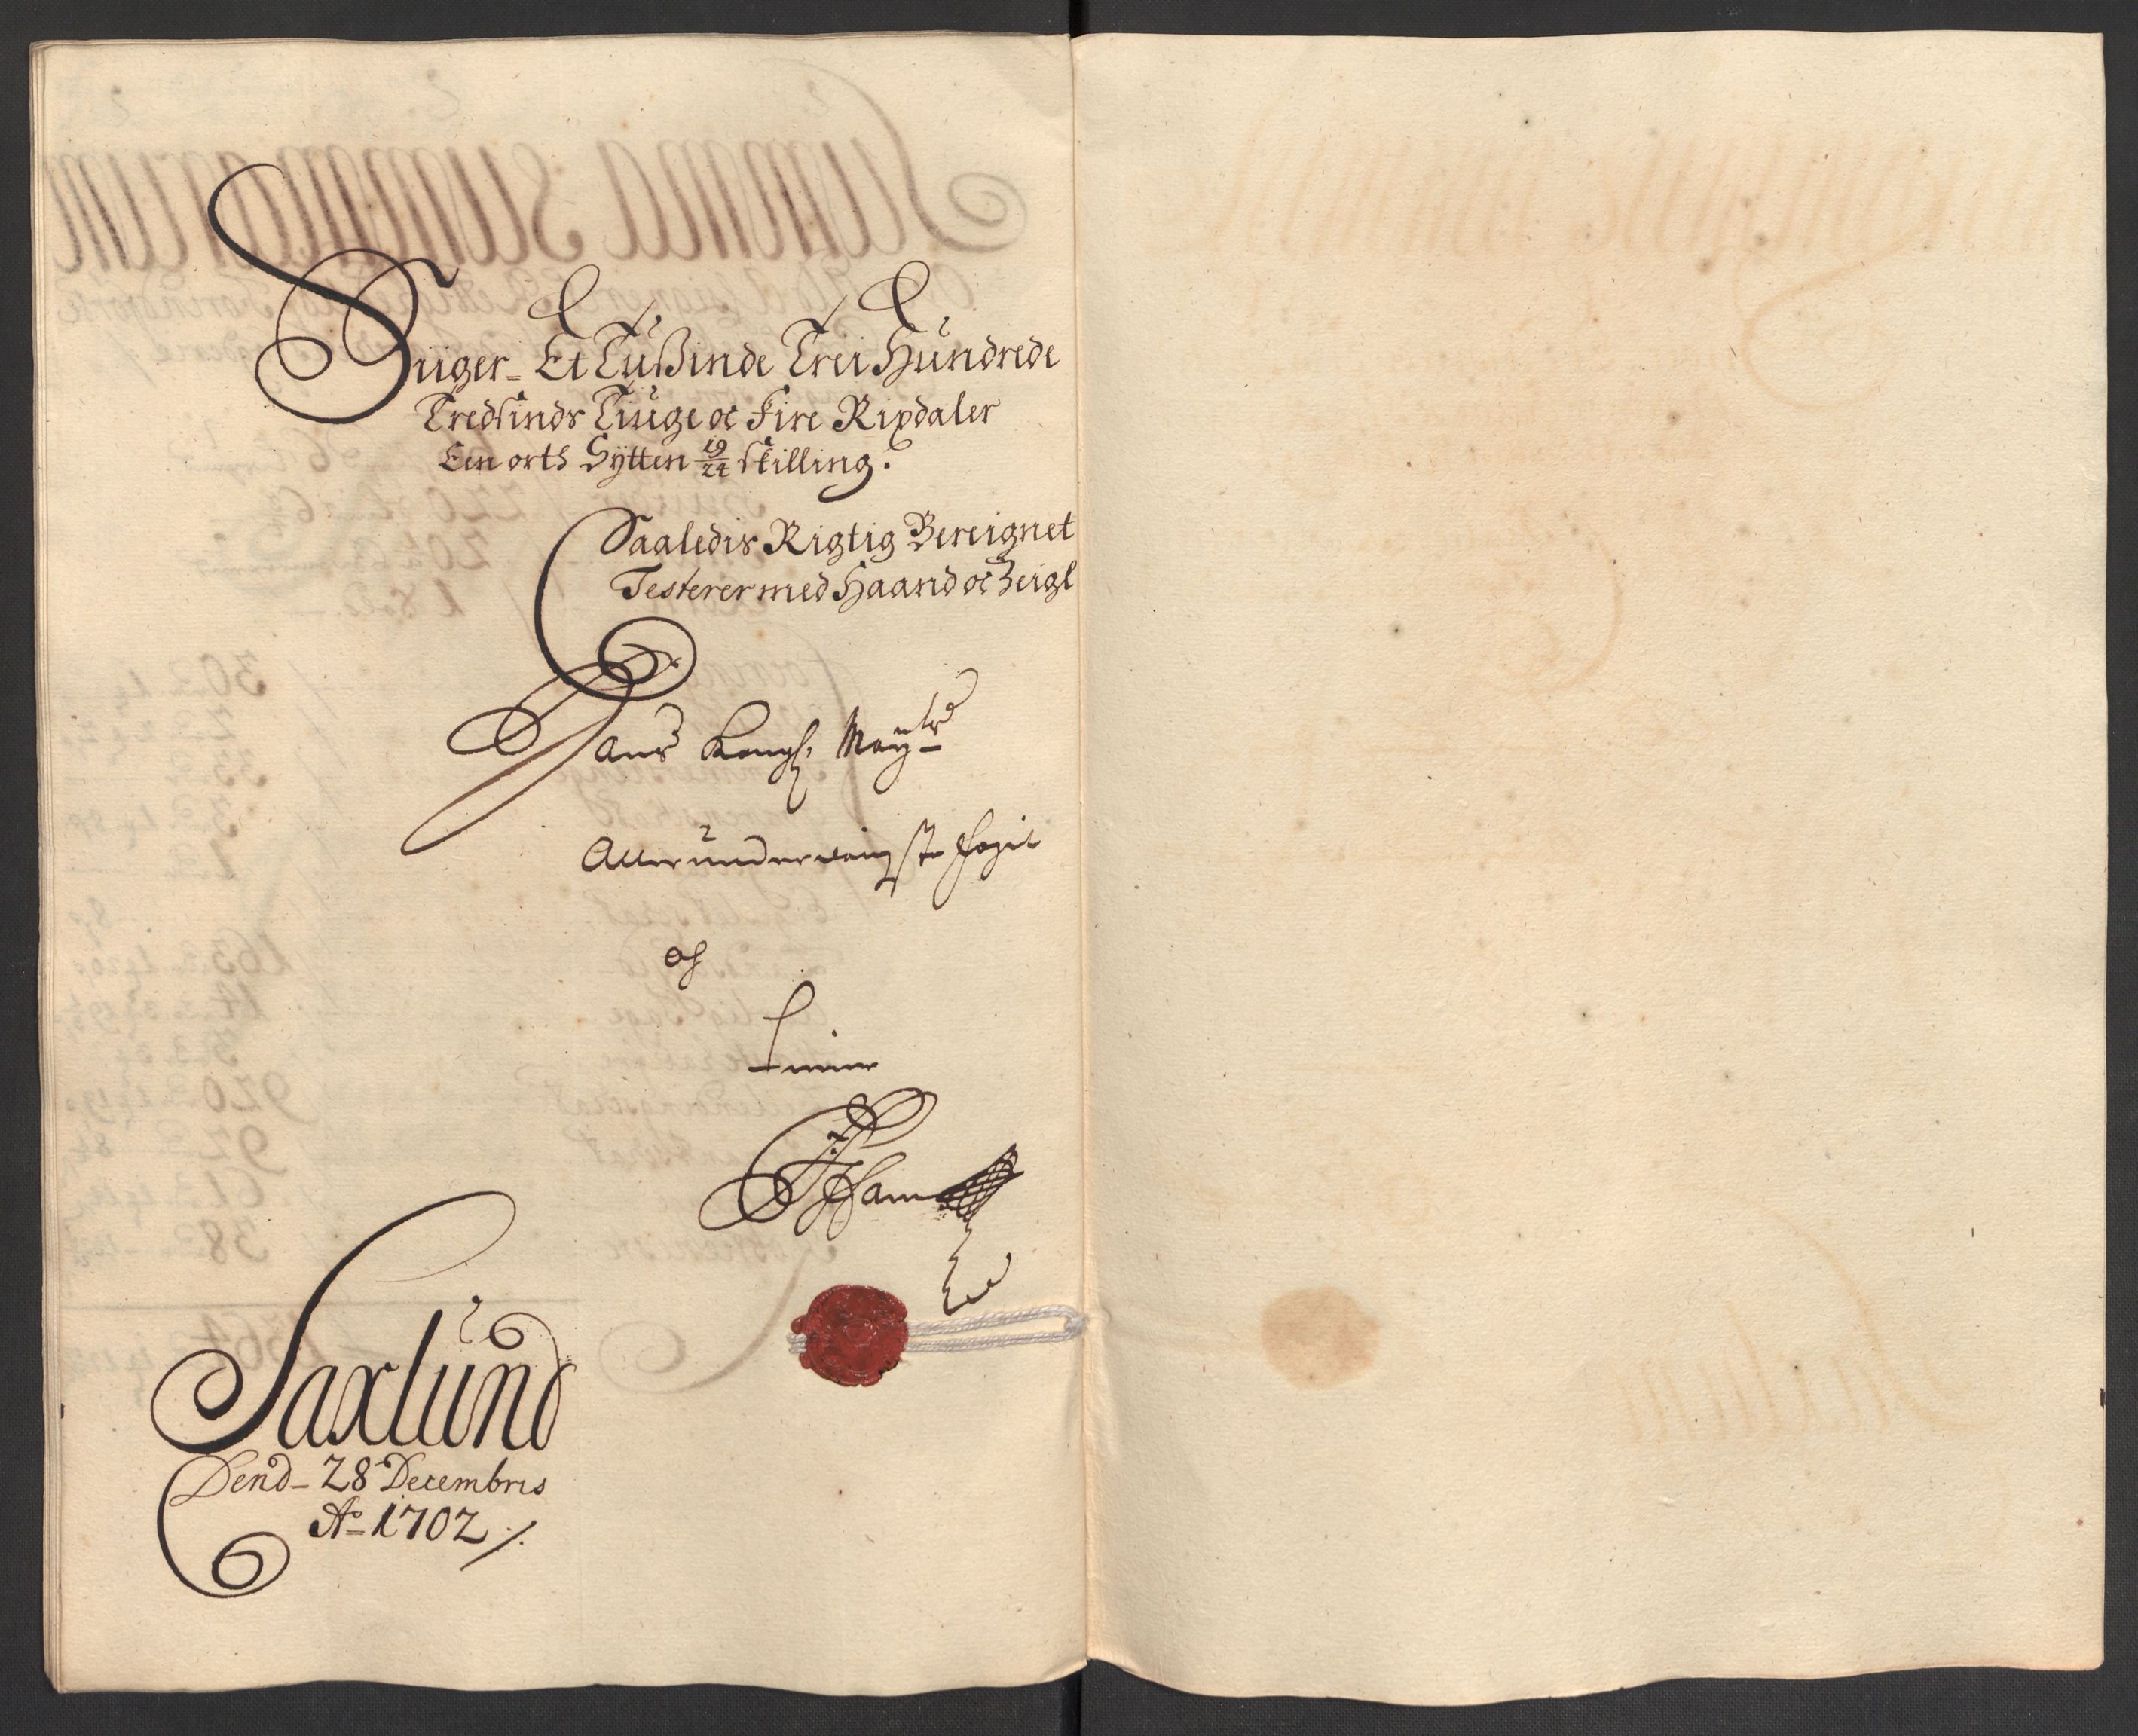 Siiger - Et Tußinde Trei Hundrede
Tredsinds Tiuge oc Fire Rixdaler
Een orth Sÿtten 19/24 skilling.
Saaledis Rigtig Bereignet
Testerer med Haand oc Zeigl
Hans Kongl. Maÿts
Allerunderdanigste Fogit
og
Tiener
Saxlund
Dend - 28 Decembris
Ao 1702 /.